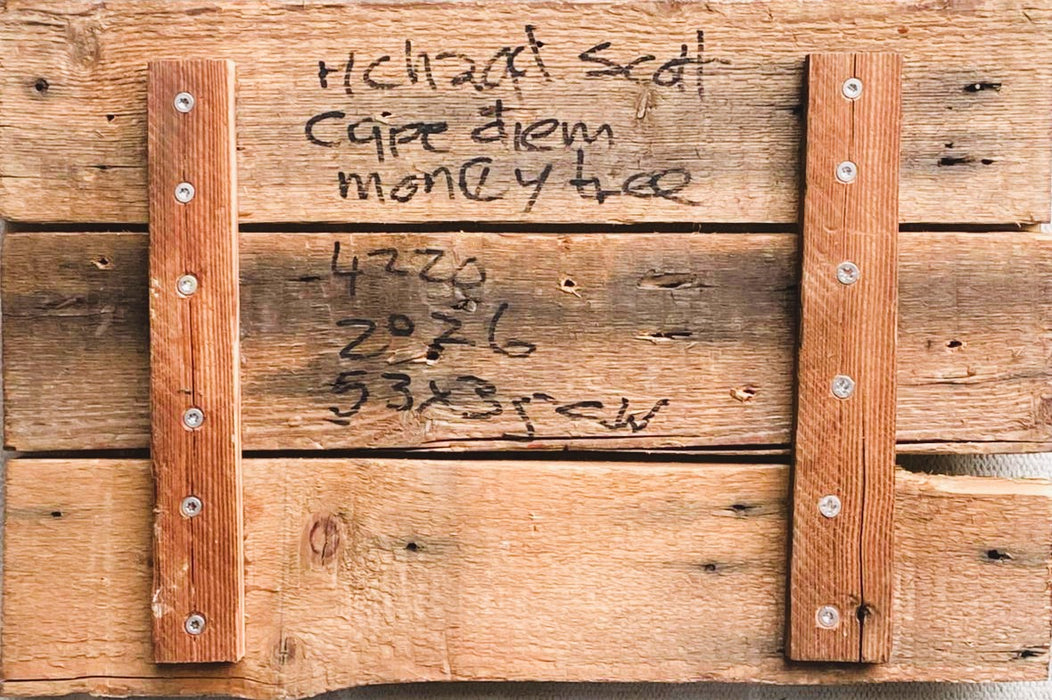 richard Scott
Cape diem
money tree
4220
2026
53x35cw